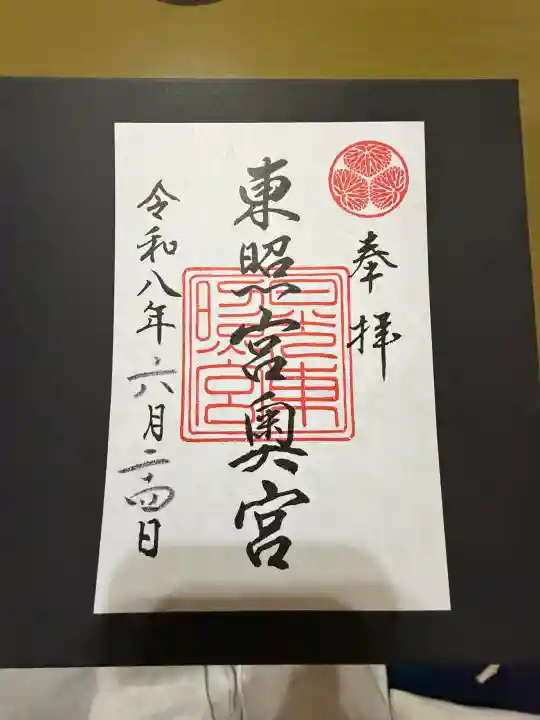 奉拝
東照宮奥宮
日光東照宮
令和八年六月二十四日